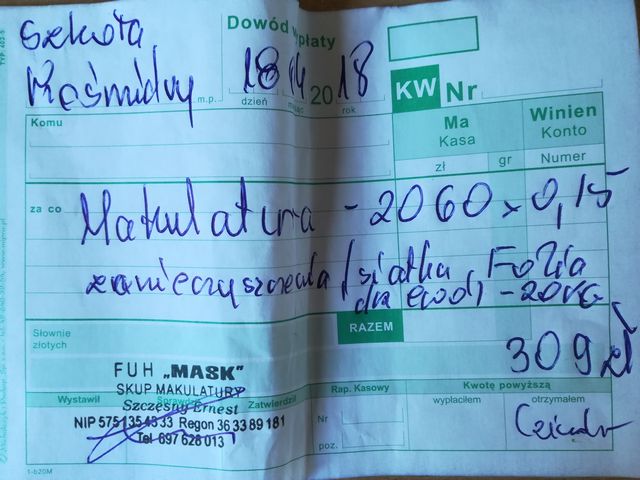 TYP: 402-5
Szkoła
Dowód wypłaty
Kośmidry
m.p.
18 04 2018
dzień
miesiąc
rok
KW Nr
Komu
Ma
Kasa
Winien
Konto
zł
gr
Numer
za co
Makulatura - 2060 x 0,15
zanieczyszczenia / siatka, Folia
- 20 KG
RAZEM
Słownie
złotych
309 zł
FUH „MASK"
SKUP MAKULATURY
Szczęsny Ernest
NIP 5751354333 Regon 363389181
Tel 697 628 013
Wystawił
Sprawdził
Zatwierdził
Rap. Kasowy
Nr
poz.
Kwotę powyższą
wypłaciłem
otrzymałem
1-b20M